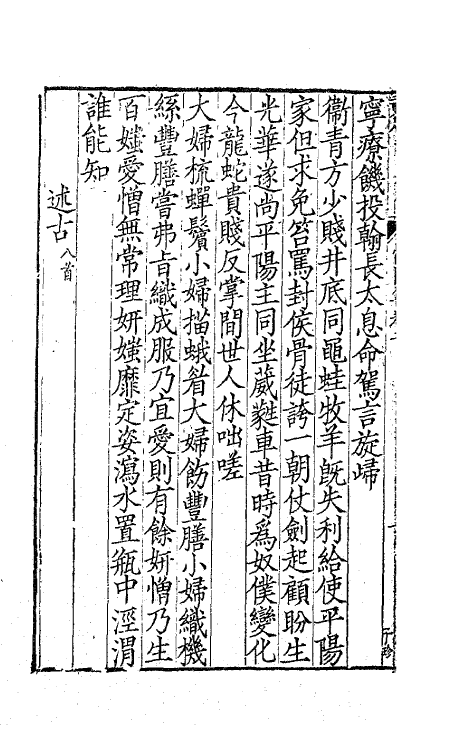 寧療饑投翰長太息命駕言旋歸
衞青方少賤井底同黽蛙牧羊旣失利給使平陽
家但求免笞罵封侯骨徒誇一朝仗劍起顧盼生
光華遂尚平陽主同坐葳蕤車昔時爲奴僕變化
今龍蛇貴賤反掌間世人休咄嗟
大婦梳蟬鬢小婦描蛾眉大婦飭豐膳小婦織機
絲豐膳嘗弗旨織成服乃宜愛則有餘妍憎乃生
百媸愛憎無常理妍媸靡定姿瀉水置瓶中涇渭
誰能知
述古八首